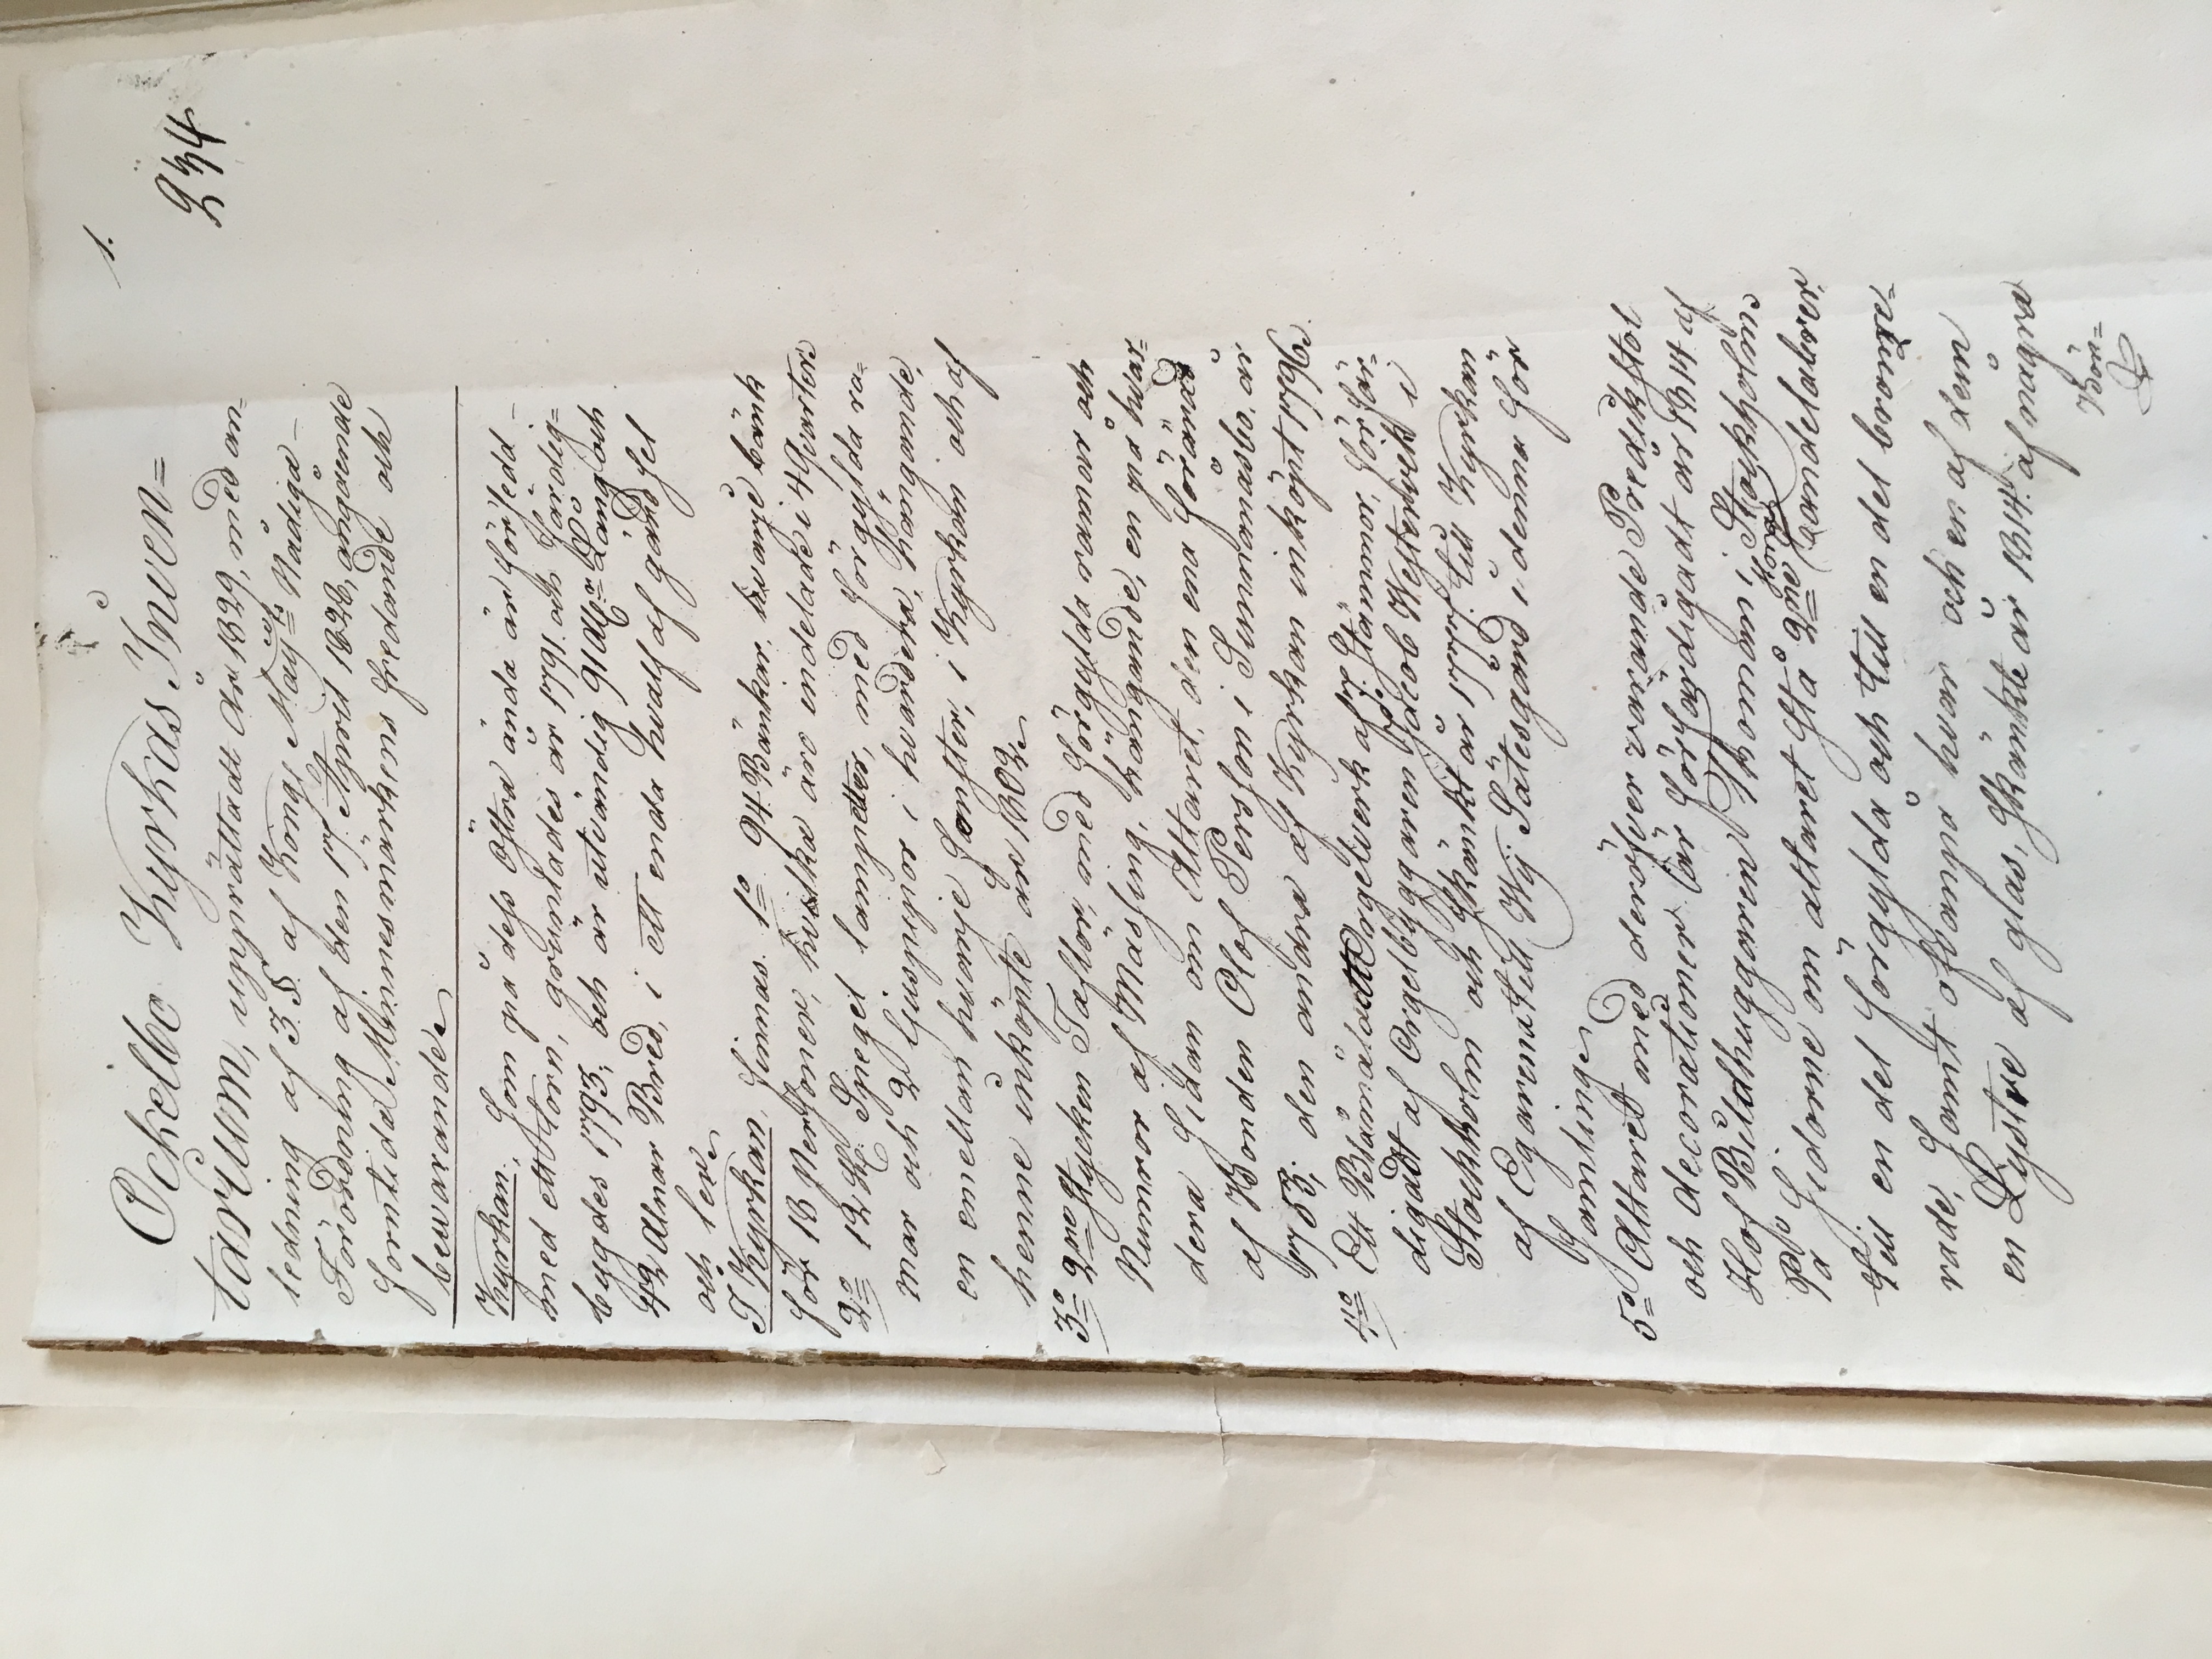 1.
244
Ockelbo Kyrkas Inven=
tarium, upprättadt År 1829, med an=
ledning af 3 § af Kongl Maij:ts Nådiga
Förordning af den 17 April 1828, angående
forntida Minnesmärkens fredande och
bewarande.
Kyrkan, som på dess östra ända är försedd
med ett torn, grundades år 1791. och färdig=
bygdes 1795; och är utvändig 91 Alnr Lång och
42 Alnar Bred, i ett enda hwalf af gråsten
och ler.
I Kyrkan finnas 1o 94 Bänkar hvarje bänk
för 18 Personer, hvilka äro indelade i 4 Qvarter
2o 12 st Spegel lampetter, med förgylda ra=
mar och 2 ljuspipor i hvardera, häng­ande
en emellan hvarje fenster, i Kyrkan och af
henne inköpte år 1802.
3o 2ne stycken Taflor, med förgylda ramar och
kronor af Mässing, hängande, en på hvar=
dera sidan om Altaret; den ena förärad
af Bonden Olof Persson i Sunnanåsbo, i
by 53; den andra af Kyrkan inköpt 1786.
4o Ett Blåmåladt Orgelwerk af 20 Stämmor, förfär=
digadt af Orgelbyggaren Jacob Westervik i
Stockholm och skänkt år 1777 till Kyrkan
af Egarena till Wij Sätesgård i denna för
samlinge.
5o Altaret med deröfver varande Predikstol
och decorationer är förfärdigadt år 1814 af
Hof Bildhuggaren Ahlborn, i Stockholm;
På sidorne om altaret stå 2ne stora Candelabrer
till en del förgylda och till en del bronse=
rade, samt ofvanpå hvar och en af dem
en Lystre af glas, skänkte år 1814 af några
Bön=